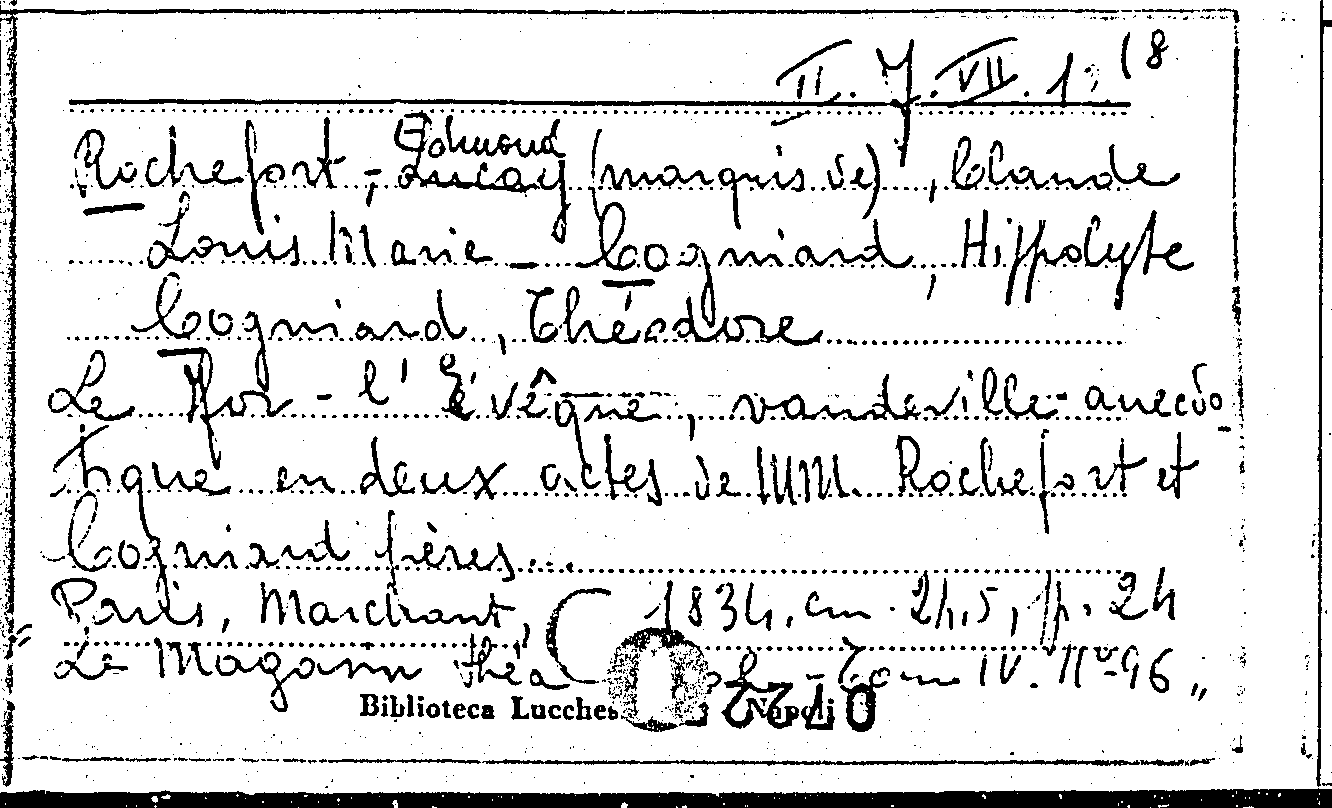 II. Y. VII. 1. 18
Edmond
Rochefort-, Luçay (marquis de), Claude
Louis Marie - Cogniard, Hippolyte
Cogniard, Théodore
Le For-l'Évêque, vaudeville-anecdo
tique en deux actes de MM. Rochefort et
Cogniard frères...
Paris, Marchant, 1834, cm. 24,5, p. 24
"Le Magasin - Tome IV. N° 96"
Biblioteca Napoli